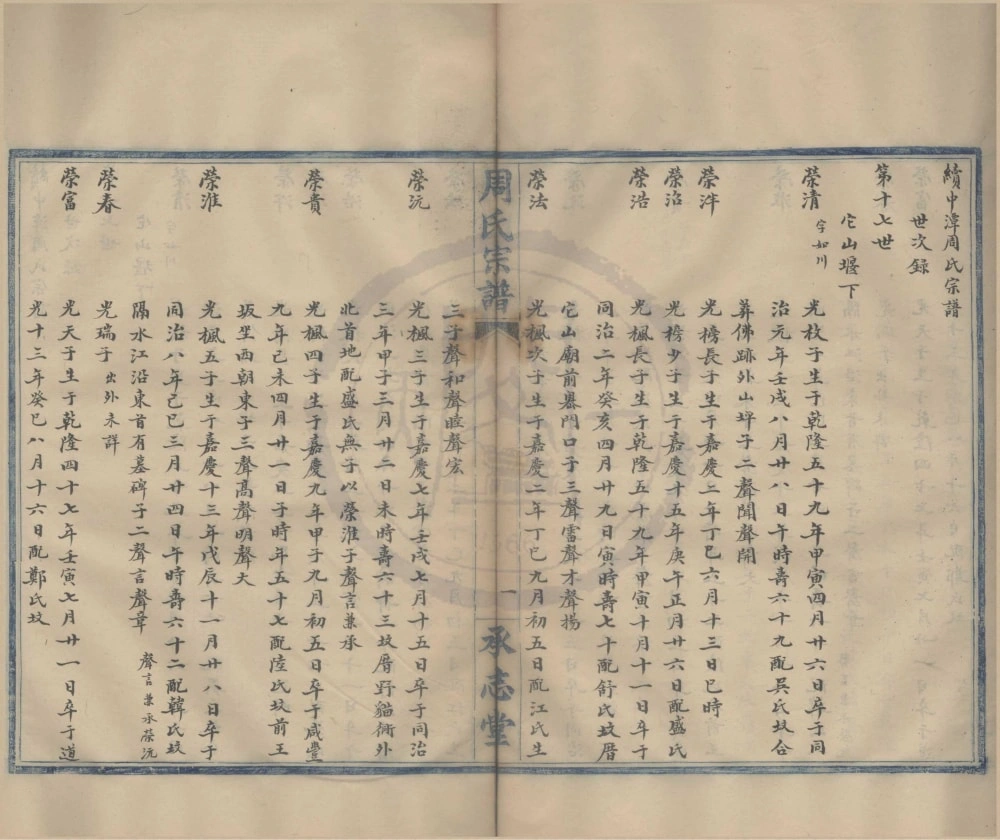 續中潭周氏宗譜
世次錄
第十七世
它山堰下
榮清 字如川
光枚子生于乾隆五十九年甲寅四月廿六日卒于同
治元年壬戌八月廿八日午時壽六十九配吳氏坟合
葬佛跡外山㘰子二聲聞聲開
榮泮
光榜長子生于嘉慶二年丁巳六月十三日巳時
榮治
光榜少子生于嘉慶十五年庚午正月廿六日配盛氏
榮浩
光楓長子生于乾隆五十九年甲寅十月十一日卒于
同治二年癸亥四月廿九日寅時壽七十配舒氏坟厝
它山廟前畧門口子三聲雷聲才聲揚
榮法
光楓次子生于嘉慶二年丁巳九月初五日配江氏生
周氏宗譜
一
承志堂
三子聲和聲睦聲宏
榮沅
光楓三子生于嘉慶七年壬戌七月十五日卒于同治
三年甲子三月廿二日未時壽六十三坟厝野貓衕外
北首地配盛氏無子以榮淮子聲言兼承
榮貴
光楓四子生于嘉慶九年甲子九月初五日卒于咸豐
九年己未四月廿一日子時年五十七配陸氏坟前王
坂坐西朝東子三聲高聲明聲大
榮淮
光楓五子生于嘉慶十三年戊辰十一月廿八日卒于
同治八年己巳三月廿四日午時壽六十二配韓氏坟
隔水江沿東首有墓碑子二聲言聲章 聲言兼承榮沅
榮春
光瑞子 出外未詳
榮富
光天子生于乾隆四十七年壬寅七月廿一日卒于道
光十三年癸巳八月十六日配鄭氏坟